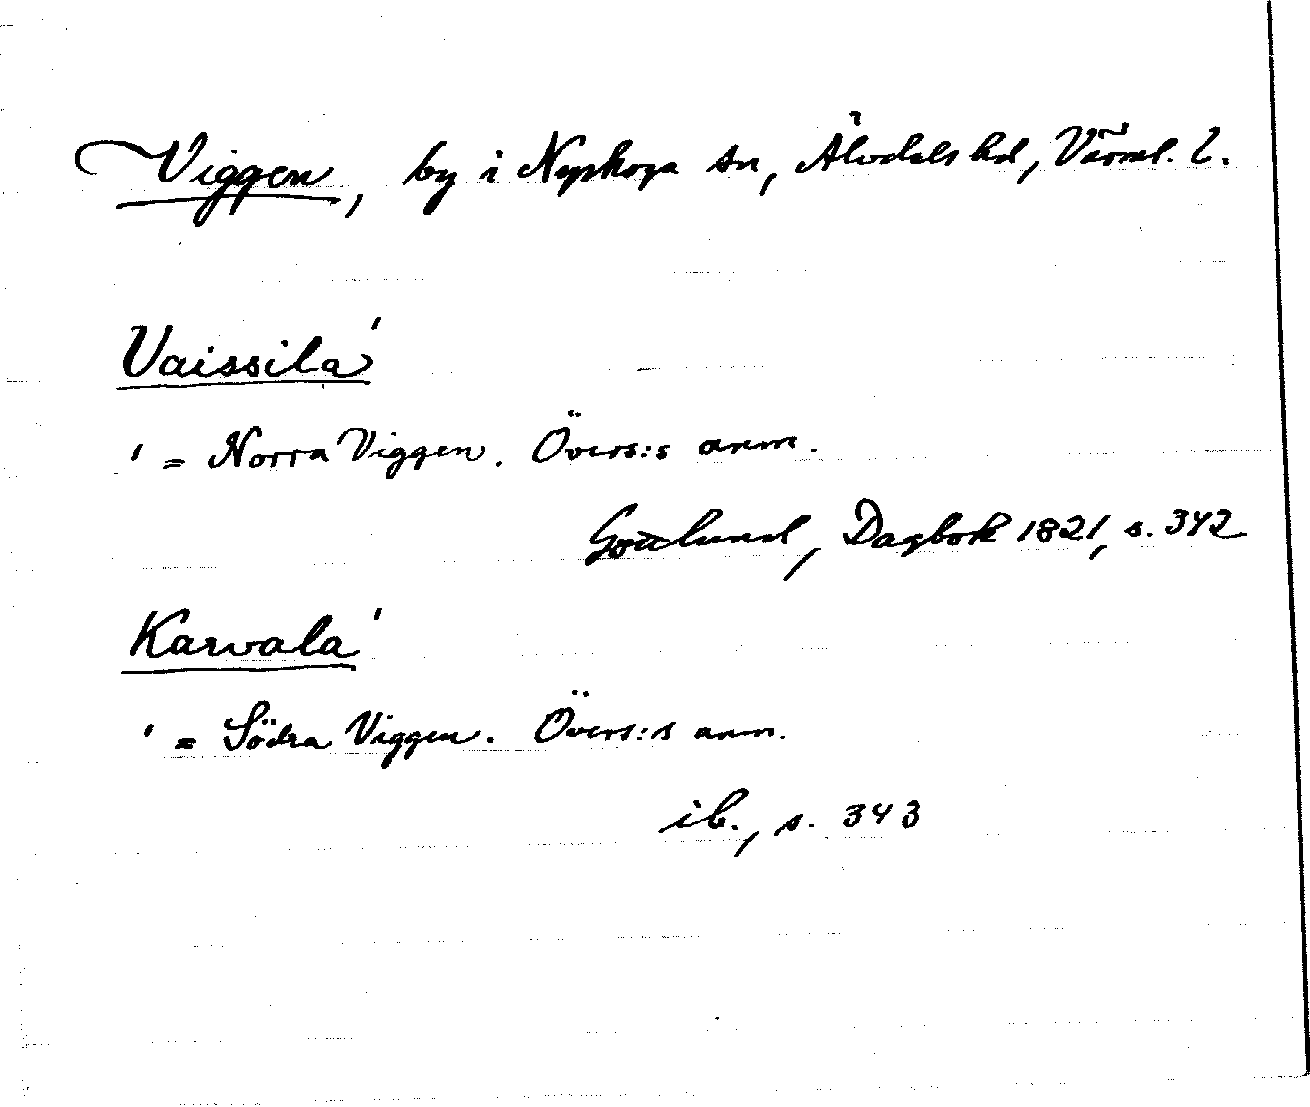 Viggen, by i Nyskoga sn, Älvdals hd, Värml. l.
Vaissila'
' = Norra Viggen. Övers:s anm.
Gottlund, Dagbok 1821, s. 342
Karvala'
' = Södra Viggen. Övers:s anm.
ib., s. 343